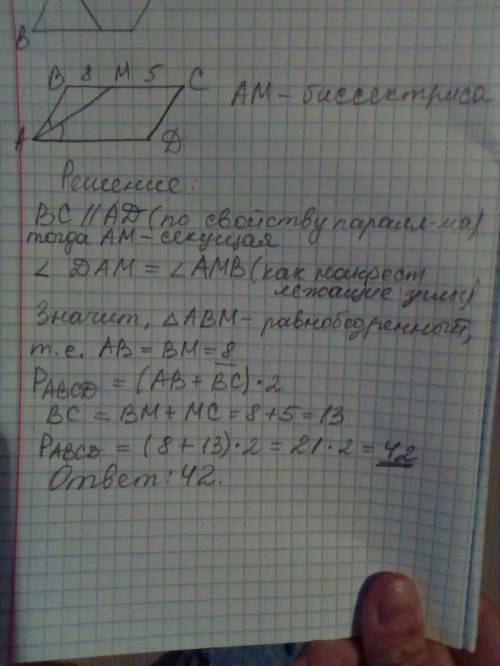 B
B 8 M 5 C
AM - биссектриса
A D
Решение:
BC // AD (по свойству паралл-ма)
тогда AM - секущая
∠ DAM = ∠ AMB (как накрест
лежащие углы)
Значит, △ABM - равнобедренный,
т.е. AB = BM = 8
P ABCD = (AB + BC) · 2
BC = BM + MC = 8 + 5 = 13
P ABCD = (8 + 13) · 2 = 21 · 2 = 42
Ответ: 42.